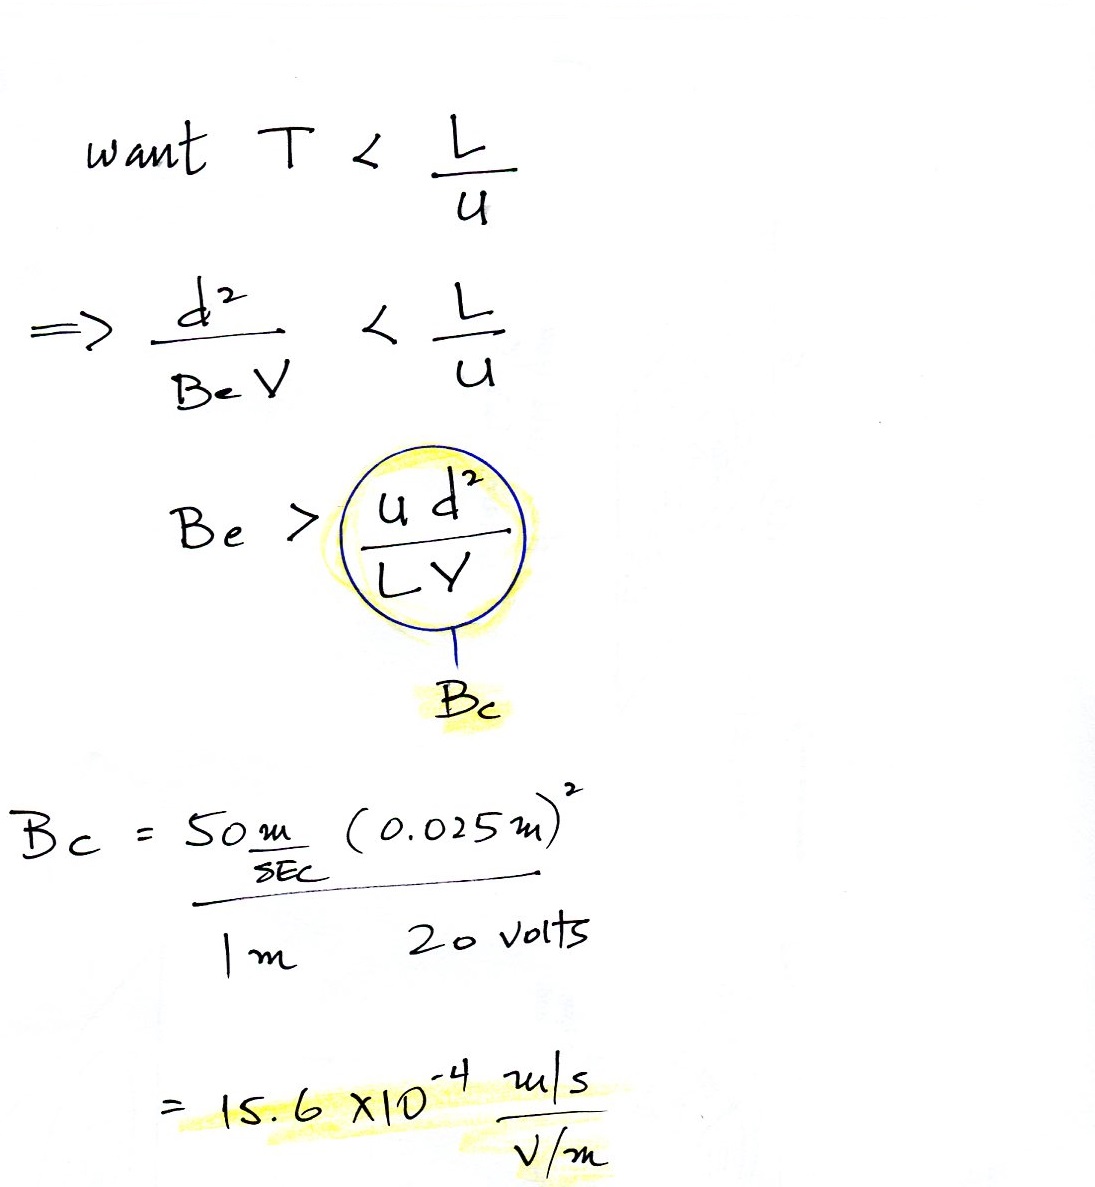 want T < L/u
=> d²/(Be V) < L/u
Be > u d²/(L V)
Bc
Bc = 50 m/SEC (0.025 m)² / (1m 20 volts)
= 15.6 x10⁻⁴ m/s / V/m